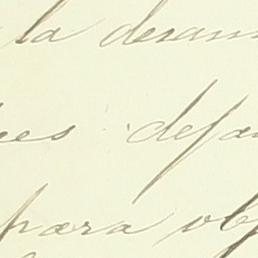 la desam
es dejan
para obj